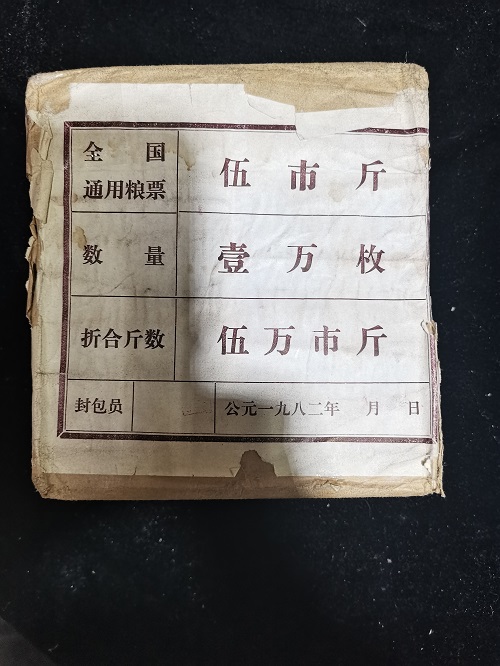 全国
通用粮票
伍市斤
数量
壹万枚
折合斤数
伍万市斤
封包员
公元一九八二年 月 日